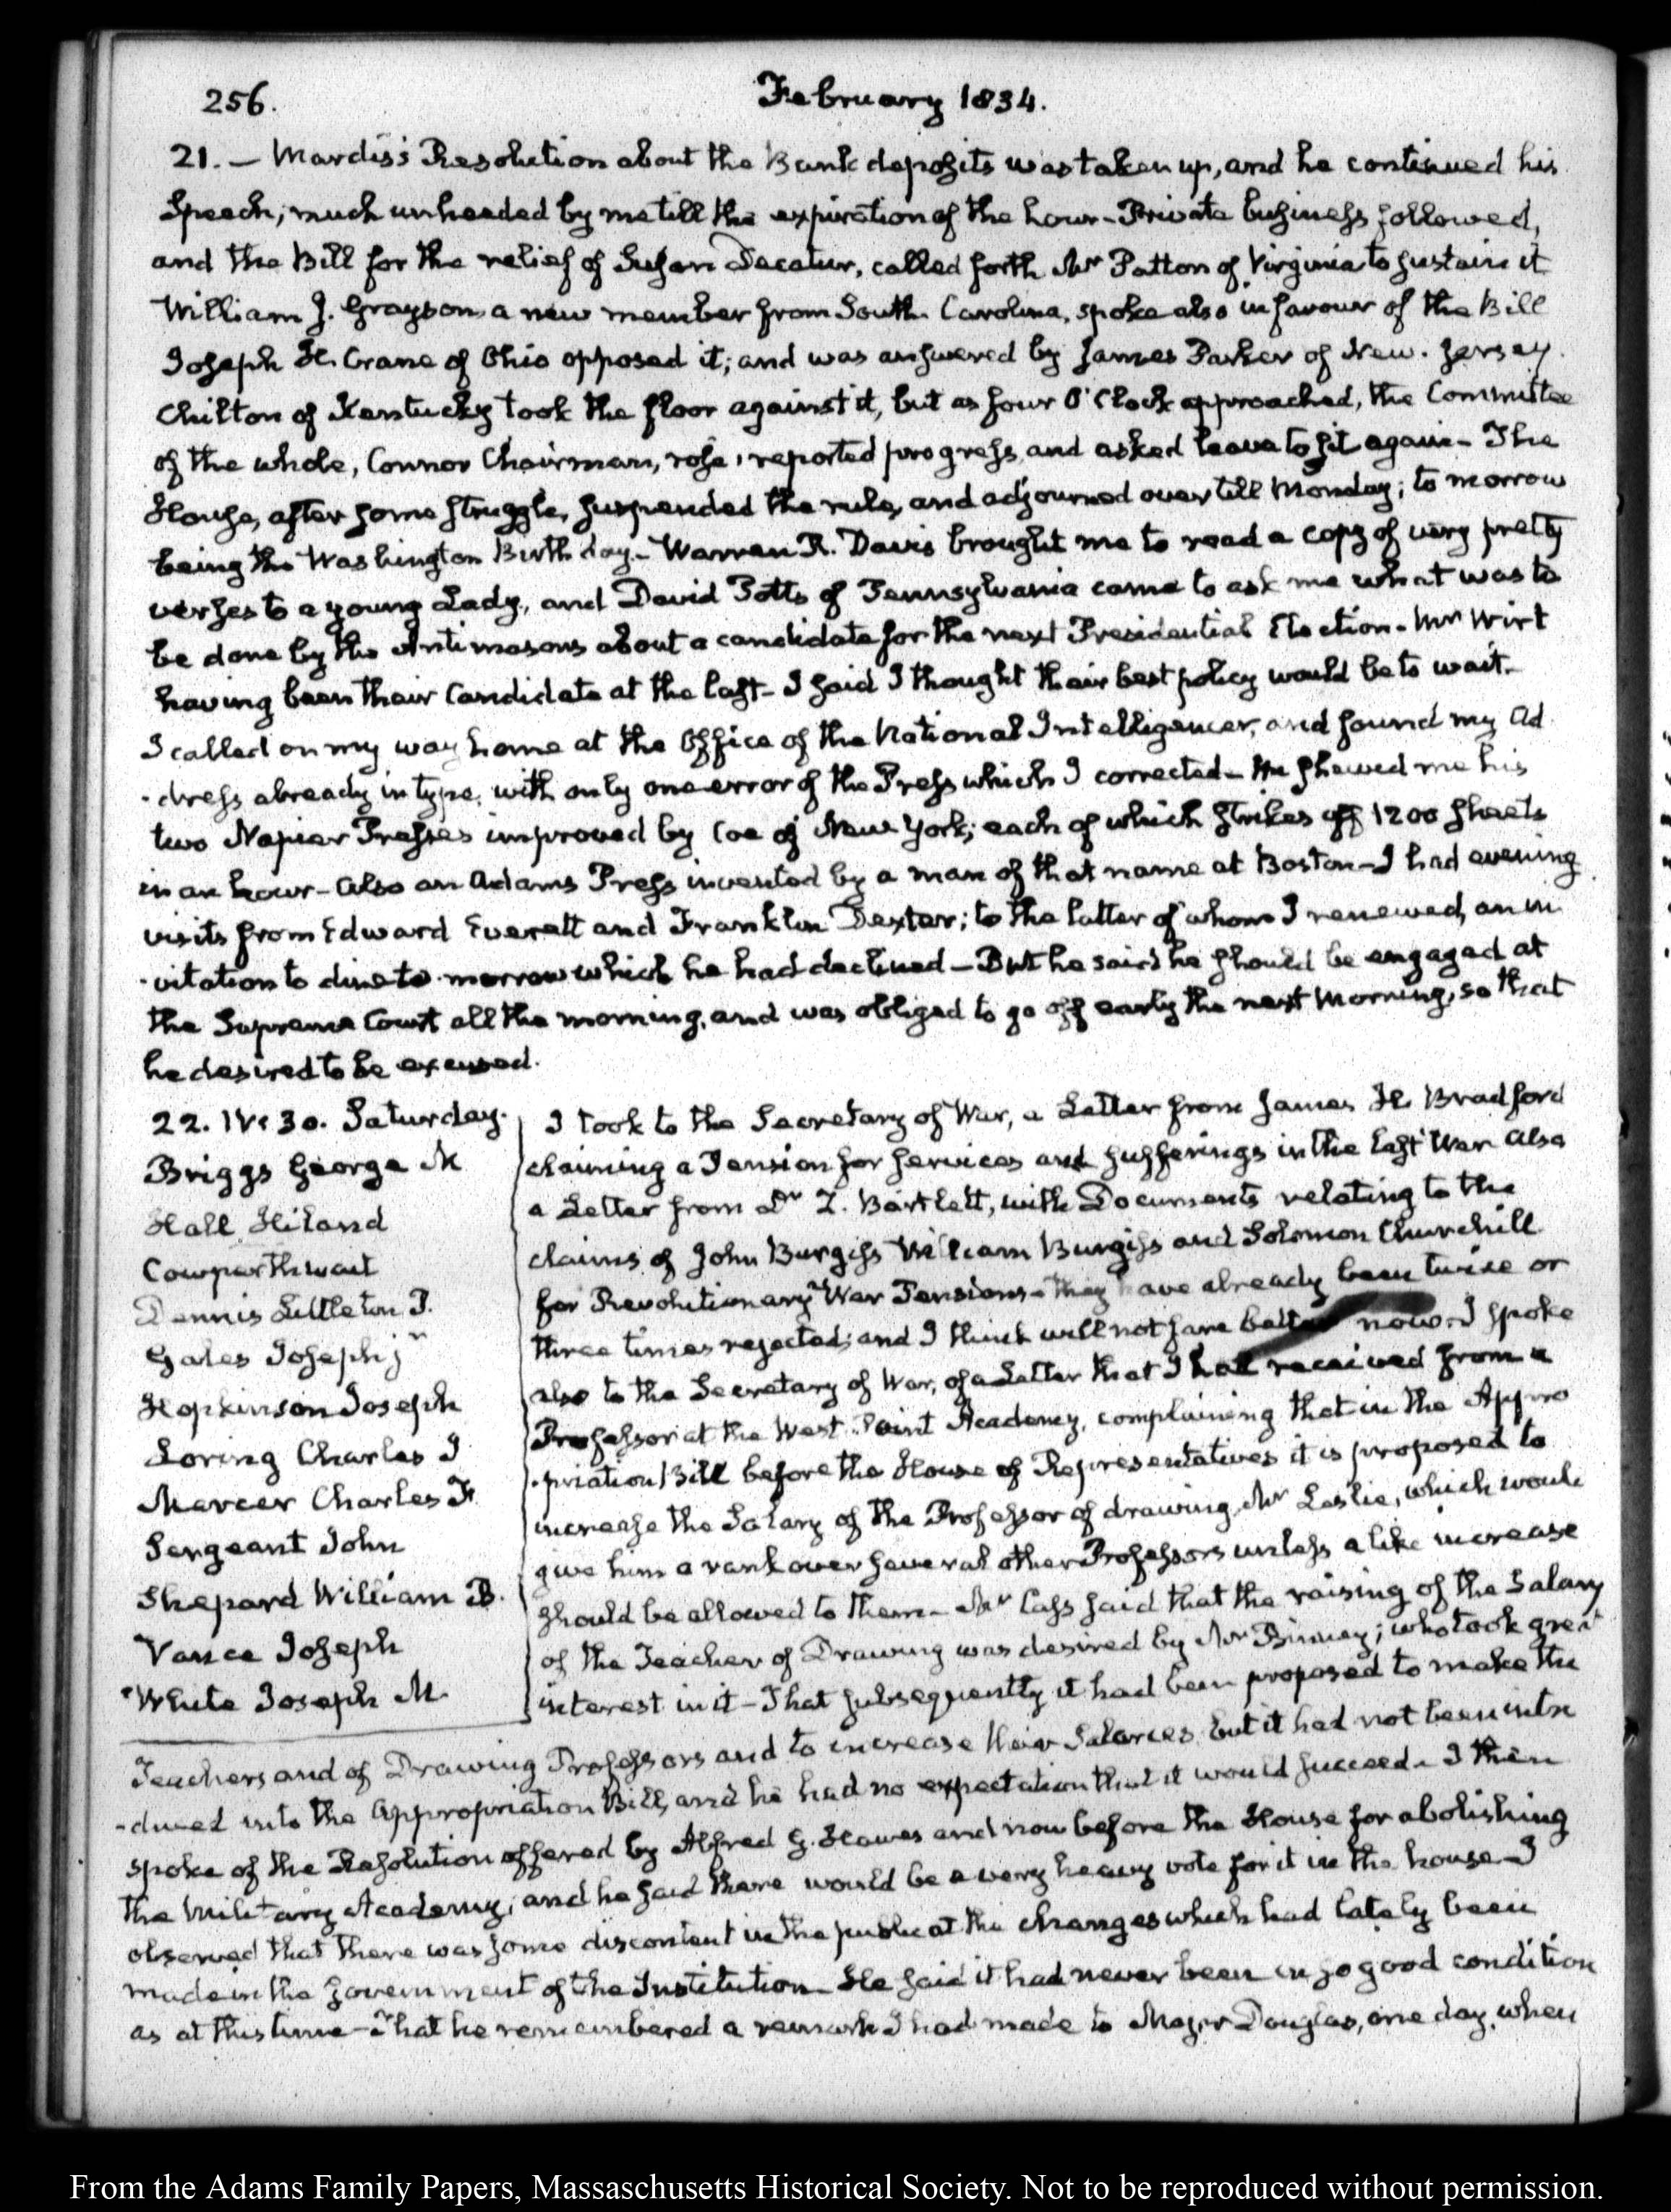 256.
February 1834.
21. — Mardis's Resolution about the Bank deposits was taken up, and he continued his
Speech, much unheeded by me till the expiration of the hour - Private business followed,
and the Bill for the relief of Susan Decatur, called forth Mr Patton of Virginia to sustain it
William J. Grayson a new member from South Carolina, spoke also in favour of the Bill
Joseph H. Crane of Ohio opposed it; and was answered by James Parker of New. Jersey.
Chilton of Kentucky took the floor against it, but as four O'Clock approached, the Committee
of the whole, Connor Chairman, rose, reported progress, and asked leave to sit again - The
House, after some struggle, suspended the rule, and adjourned over till Monday; to morrow
being the Washington Birth day - Warren R. Davis brought me to read a copy of very pretty
verses to a young Lady, and David Potts of Pennsylvania came to ask me what was to
be done by the Antimasons about a candidate for the next Presidential Election - Mr Wirt
having been their Candidate at the last - I said I thought their best policy would be to wait.
I called on my way home at the Office of the National Intelligencer, and found my Ad
-dress already in type, with only one error of the Press which I corrected - He shewed me his
two Napier Presses improved by Coe of New York; each of which strikes off 1200 sheets
in an hour - Also an Adams Press invented by a man of that name at Boston - I had evening
visits from Edward Everett and Franklin Dexter; to the latter of whom I renewed, an in
-vitation to dine to-morrow which he had declined - But he said he should be engaged at
the Supreme Court all the morning, and was obliged to go off early the next Morning, so that
he desired to be excused.
22. IV: 30. Saturday.
Briggs George N
Hall Hiland
Cowperthwait
Dennis Littleton P.
Gales Joseph jr
Hopkinson Joseph
Loring Charles G
Mercer Charles F.
Sergeant John
Shepard William B.
Vance Joseph
White Joseph M.
I took to the Secretary of War, a Letter from James H. Bradford
claiming a Pension for services and sufferings in the last War also
a Letter from Dr Z. Bartlett, with Documents relating to the
claims of John Burgess William Burgess and Solomon Churchill
for Revolutionary War Pensions - they have already been twice or
three times rejected; and I think will not fare better now. I spoke
also to the Secretary of War, of a Letter that I had received from a
Professor at the West. Point Academy, complaining that in the Appro
-priation Bill before the House of Representatives it is proposed to
increase the Salary of the Professor of drawing, Mr Leslie, which would
give him a rank over several other Professors unless a like increase
should be allowed to them - Mr Cass said that the raising of the Salary
of the Teacher of Drawing was desired by Mr Binney; who took great
interest in it - That subsequently it had been proposed to make the
Teachers and of Drawing Professors and to increase their Salaries, but it had not been intro
-duced into the Appropriation Bill, and he had no expectation that it would succeed - I then
spoke of the Resolution offered by Albert G. Hawes and now before the House for abolishing
the Military Academy; and he said there would be a very heavy vote for it in the house - I
observed that there was some discontent in the public at the changes which had lately been
made in the government of the Institution - He said it had never been in so good condition
as at this time - That he remembered a remark I had made to Major Douglas, one day, when
From the Adams Family Papers, Massachusetts Historical Society. Not to be reproduced without permission.